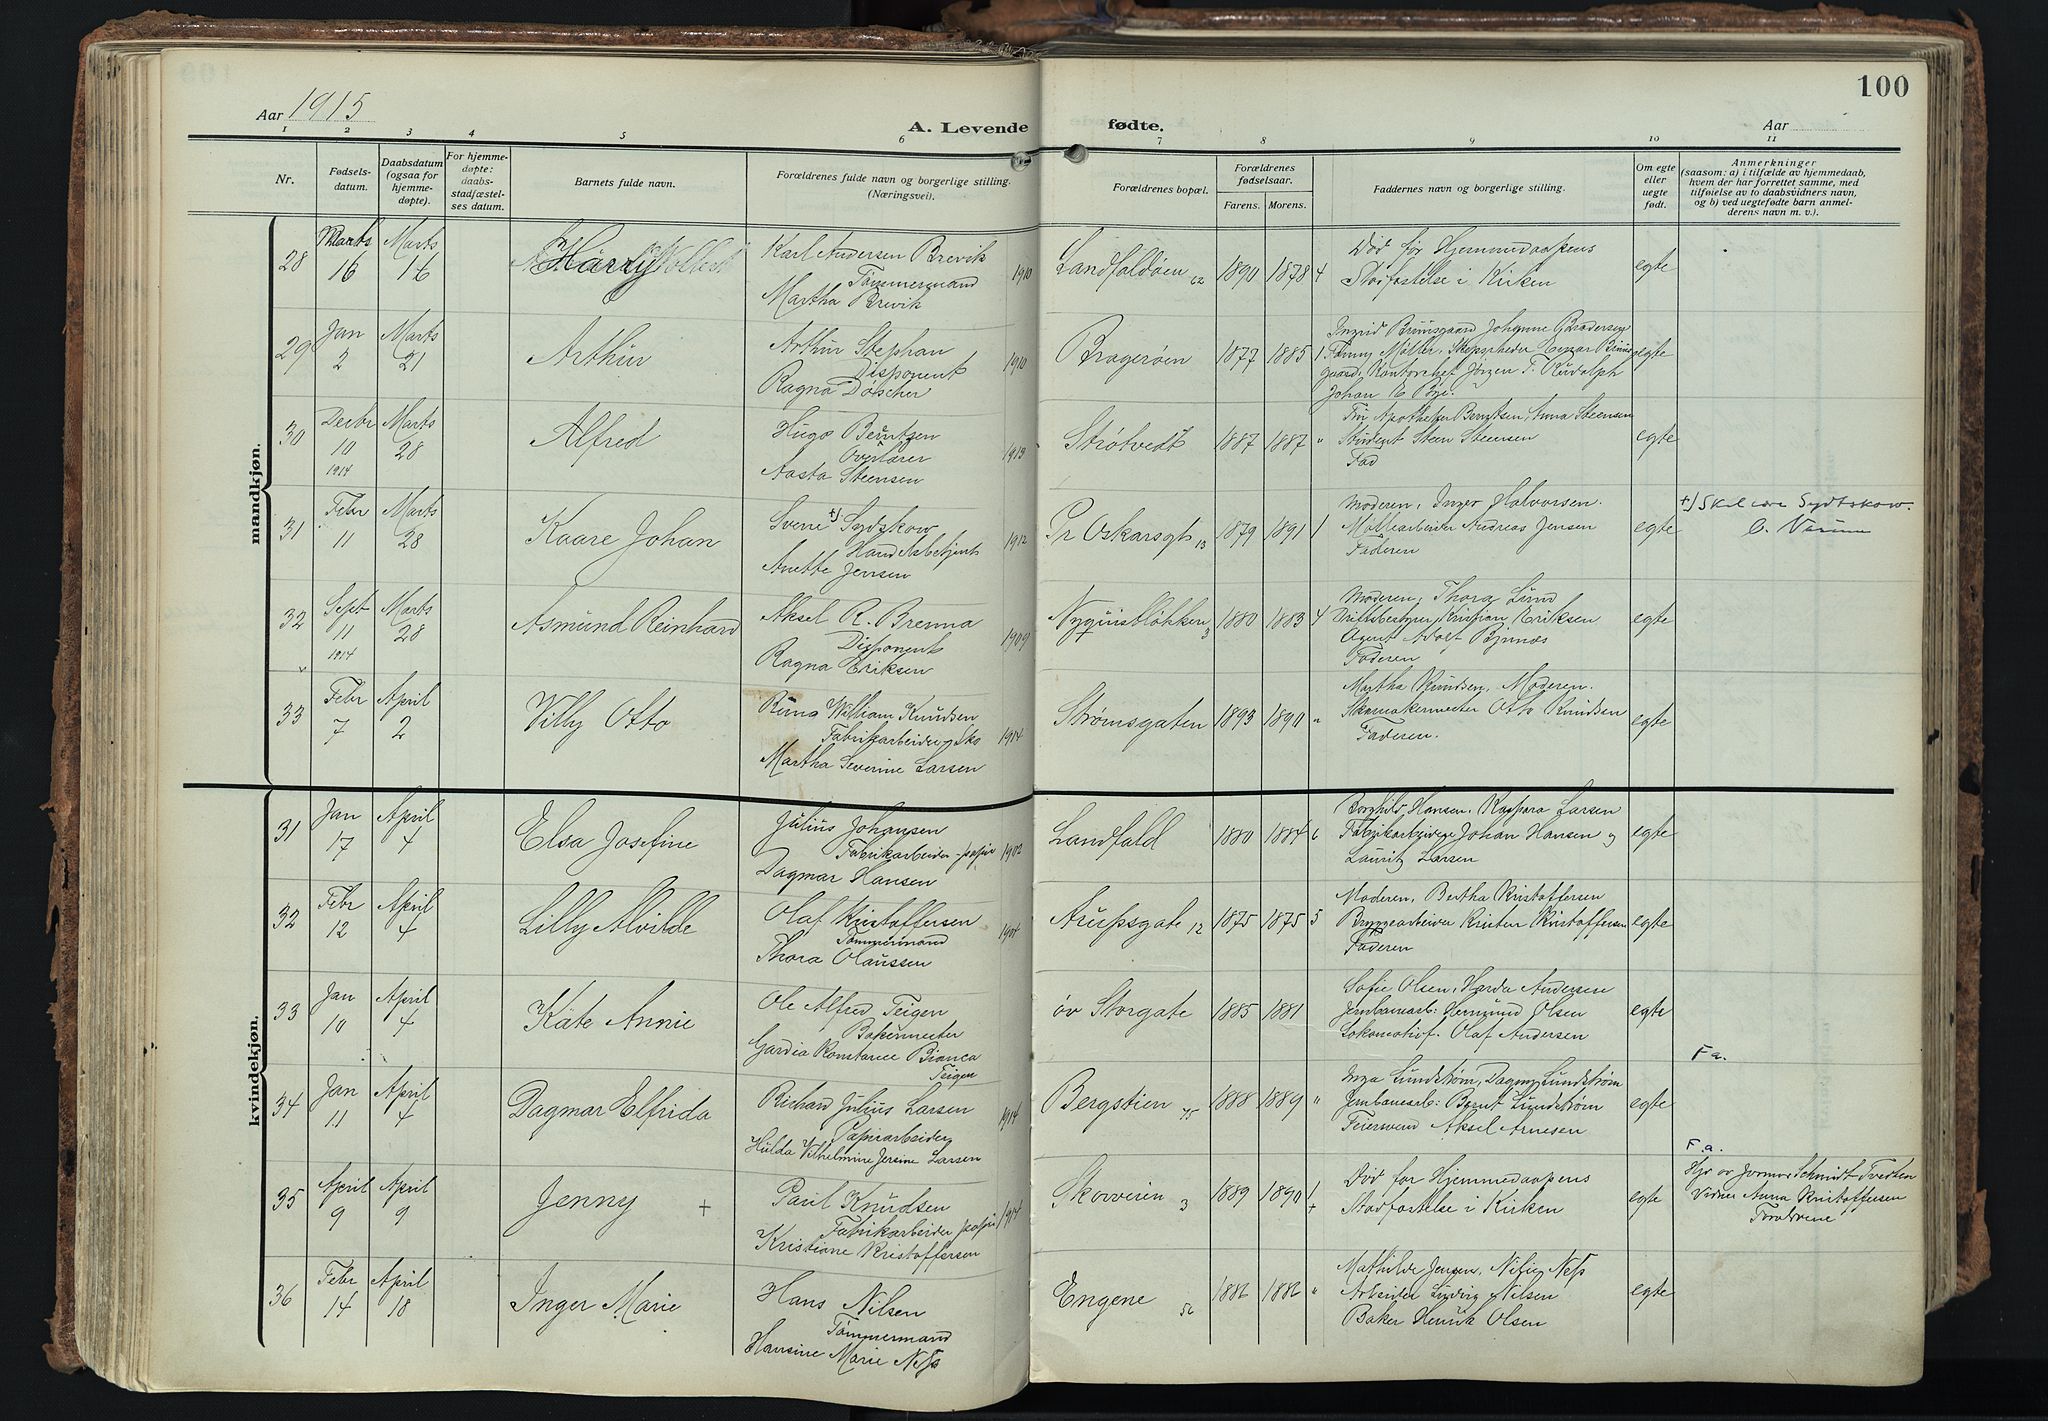 100
Aar 1915
A. Levende fødte.
Aar
1 2 3 4 5 6 7 8 9 10 11
Nr.
Fødselsdatum.
Daabsdatum (ogsaa for hjemmedøpte).
For hjemmedøpte: daabsstadfæstelses datum.
Barnets fulde navn.
Forældrenes fulde navn og borgerlige stilling. (Næringsvei).
Forældrenes bopæl.
Forældrenes fødselsaar.
Farens. Morens.
Faddernes navn og borgerlige stilling.
Om egte eller uegte født.
Anmerkninger
(saasom: a) i tilfælde av hjemmedaab,
hvem der har forrettet samme, med
tilføielse av to daabsvidners navn,
og b) ved uegtefødte barn anmelderens navn m. v.).
mandkjøn.
28 Marts 16 Marts 16 Harry
Karl Andersen Brevik
Tømmermand
Martha Brevik
1910 Landfaldøen 62 1890 1878 4
Død før Hjemmedaapens
Stadfæstelse i Kirken
egte
29 Jan 2 Marts 21 Arthur
Arthur Stephan
Disponent
Ragna Døscher
1910 Bragerøen 1877 1885 1
Ingrid Brunsgaard Johanne Brodersen
Fanny Møller, Skipsrheder Einar Bruusgaard, Kontorchef Jørgen T. Rudolph
Johan E Bye.
egte
30 Decbr 10 1914 Marts 28 Alfred
Hugo Berntsen
Overlærer
Aasta Steensen
1913 Strøtvedt 1887 1887 "
Fru Apotheker Berntsen, Anna Steensen
Student Steen Steensen
Fad
egte
31 Febr 11 Marts 28 Kaare Johan
Sverre +) Sydskow
Handelsbetjent
Anette Jensen
1912 Pr Oskarsgt 13 1879 1891 1
Moderen, Inger Halvorsen.
Møllearbeider Andreas Jensen
Faderen
egte
+) Skal være Sydtskow.
32 Sept 11 1914 Marts 28 Asmund Reinhard
Aksel R. Brenna
Disponent
Ragna Eriksen
1909 Nyquistløkken 3 1880 1883 4
Moderen, Thora Lund
Driftsbestyrer Kristian Eriksen
Agent Adolf Bjørnæs
Faderen
egte
33 Febr 7 April 2 Villy Otto
Runa William Knudsen
Fabrikarbeider, sko
Martha Severine Larsen
1914 Strømsgaten 1893 1890 "
Martha Knudsen, Moderen.
Skomakermester Otto Knudsen
Faderen.
egte
kvindekjøn.
31 Jan 17 April 4 Elsa Josefine
Julius Johansen
Fabrikarbeider - papir
Dagmar Hansen
1902 Landfald 1880 1884 6
Borghild Hansen, Kaspara Larsen
Fabrikarbeidere Johan Hansen og
Lauritz Larsen
egte
32 Febr 12 April 4 Lilly Alvilde
Olaf Kristoffersen
Tømmermand
Thora Olaussen
1904 Arupsgate 12 1875 1875 5
Moderen, Bertha Kristoffersen
Bryggearbeider Kristen Kristoffersen
Faderen
egte
33 Jan 10 April 4 Käte Annie
Ole Alfred Teigen
Bakermester
Gardia Konstance Bianca
Teigen
øv Storgate 1885 1881
Sofie Olsen, Harda Andersen
Jernbanearb: Hermund Olsen
Lokomotivf. Olaf Andersen
egte
F a.
34 Jan 11 April 4 Dagmar Elfrida
Richard Julius Larsen
Papirarbeider
Hulda Vilhelmine Jersine Larsen
1914 Bergstien 75 1888 1889 "
Inga Lundstrøm, Dagny Lundstrøm
Jernbanearb: Bernt Lundstrøm
Feiersvend Aksel Arnesen
egte
F a.
35 April 9 April 9 Jenny +
Paul Knudsen
Fabrikarbeider papir
Kristiane Kristoffersen
1914 Skovveien 3 1889 1890 1 +
Død før Hjemmedaapens
Stadfæstelse i Kirken
egte
Hjd av Jormor Schmidt-Tvedten
Vidner Anna Kristoffersen
Forældrene
36 Febr 14 April 18 Inger Marie
Hans Nilsen
Tømmermand
Hansine Marie Næss
Engene 56 1886 1886 "
Mathilde Jensen, Næss
Arbeider Ludvig Nilsen
Baker Henrik Olsen
egte